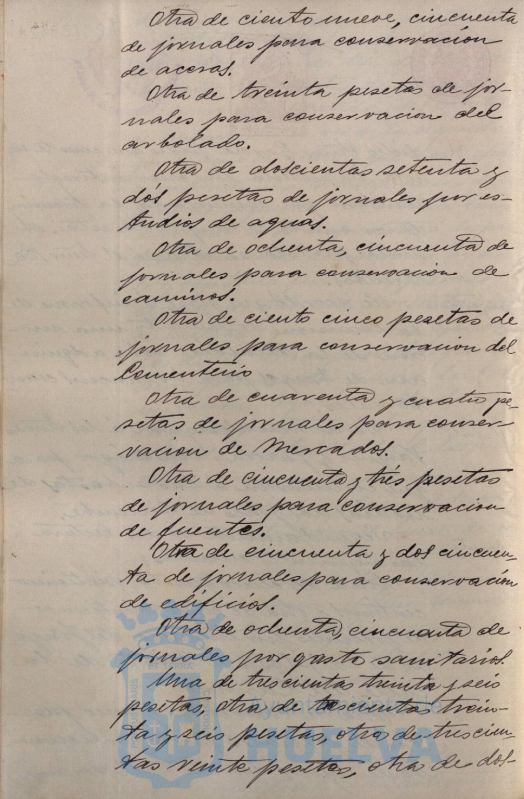 Otra de ciento nueve, cincuenta
de jornales para conservacion
de aceras.
Otra de treinta pesetas de jor-
nales para conservacion del
arbolado.
Otra de doscientas setenta y
dós pesetas de jornales por es-
tudios de aguas.
Otra de ochenta, cincuenta de
jornales para conservacion de
caminos.
Otra de ciento cinco pesetas de
jornales para conservacion del
Cementerio
Otra de cuarenta y cuatro pe-
setas de jornales para conser-
vacion de Mercados.
Otra de cincuenta y trés pesetas
de jornales para conservacion
de fuentes.
Otra de cincuenta y dos cincuen-
ta de jornales para conservación
de edificios.
Otra de ochenta, cincuenta de
jornales por gasto sanitarios.
Una de trescientas treinta y seis
pesetas, otra de trescientas trein-
ta y seis pesetas, otra de trescien-
tas veinte pesetas, otra de dos-
HUELVA